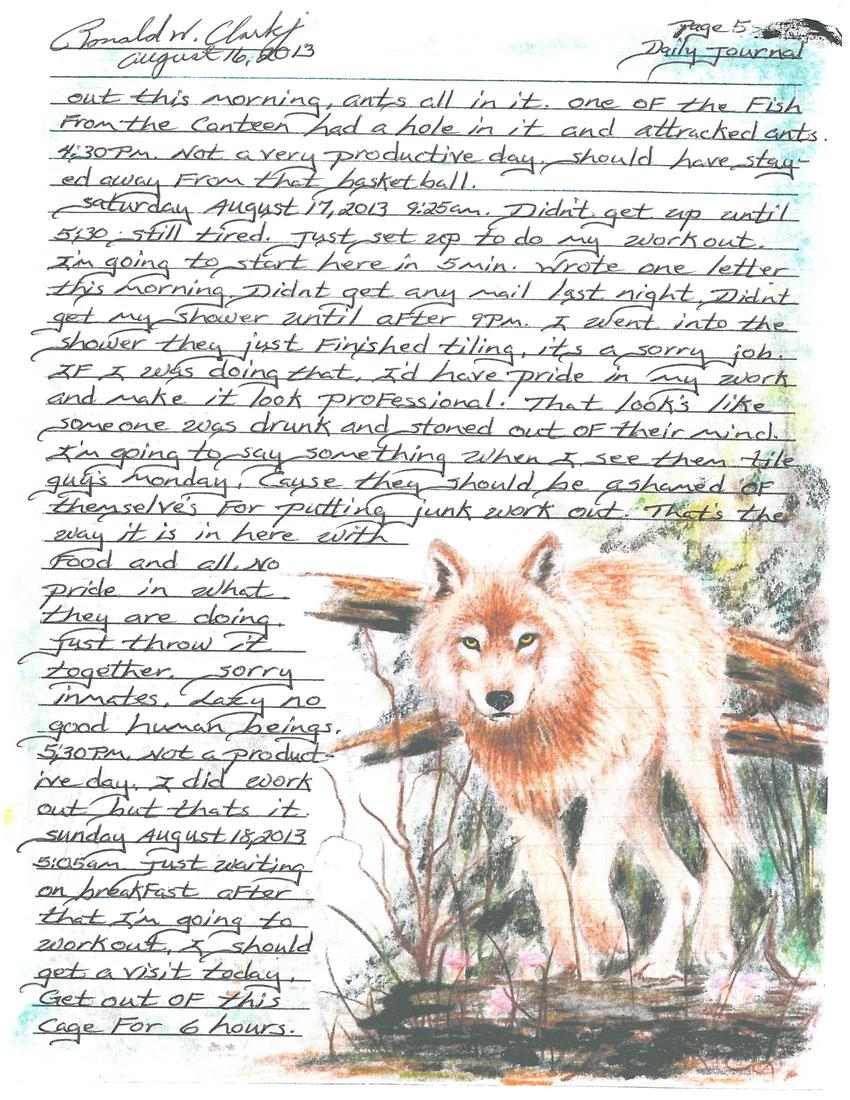 Ronald W. Clark Jr
August 16, 2013
Page 5
Daily Journal
out this morning, ants all in it. one OF the Fish
From the Canteen had a hole in it and attracked ants.
4:30PM. Not a very productive day, should have stay-
ed away From that basketball.
saturday August 17, 2013 9:25am. Didn't get up until
5:30 still tired. Just set up to do my workout.
I'm going to start here in 5min. Wrote one letter
this morning. Didnt get any mail last night. Didnt
get my shower until after 9PM. I went into the
shower they just Finished tiling, it's a sorry job.
IF I was doing that, I'd have pride in my work
and make it look proFessional! That look's like
someone was drunk and stoned out OF their mind.
I'm going to say something when I see them tile
guy's Monday. Cause they should be ashamed oF
themselve's For putting junk work out. That's the
way it is in here with
Food and all. No
pride in what
they are doing,
Just throw it
together. sorry
inmates. Lazy no
good human beings.
5:30PM. Not a product-
ive day. I did work
out but thats it.
sunday August 18, 2013
5:05am Just waiting
on breakFast aFter
that I'm going to
workout, I should
get a visit today.
Get out OF this
Cage For 6 hours.